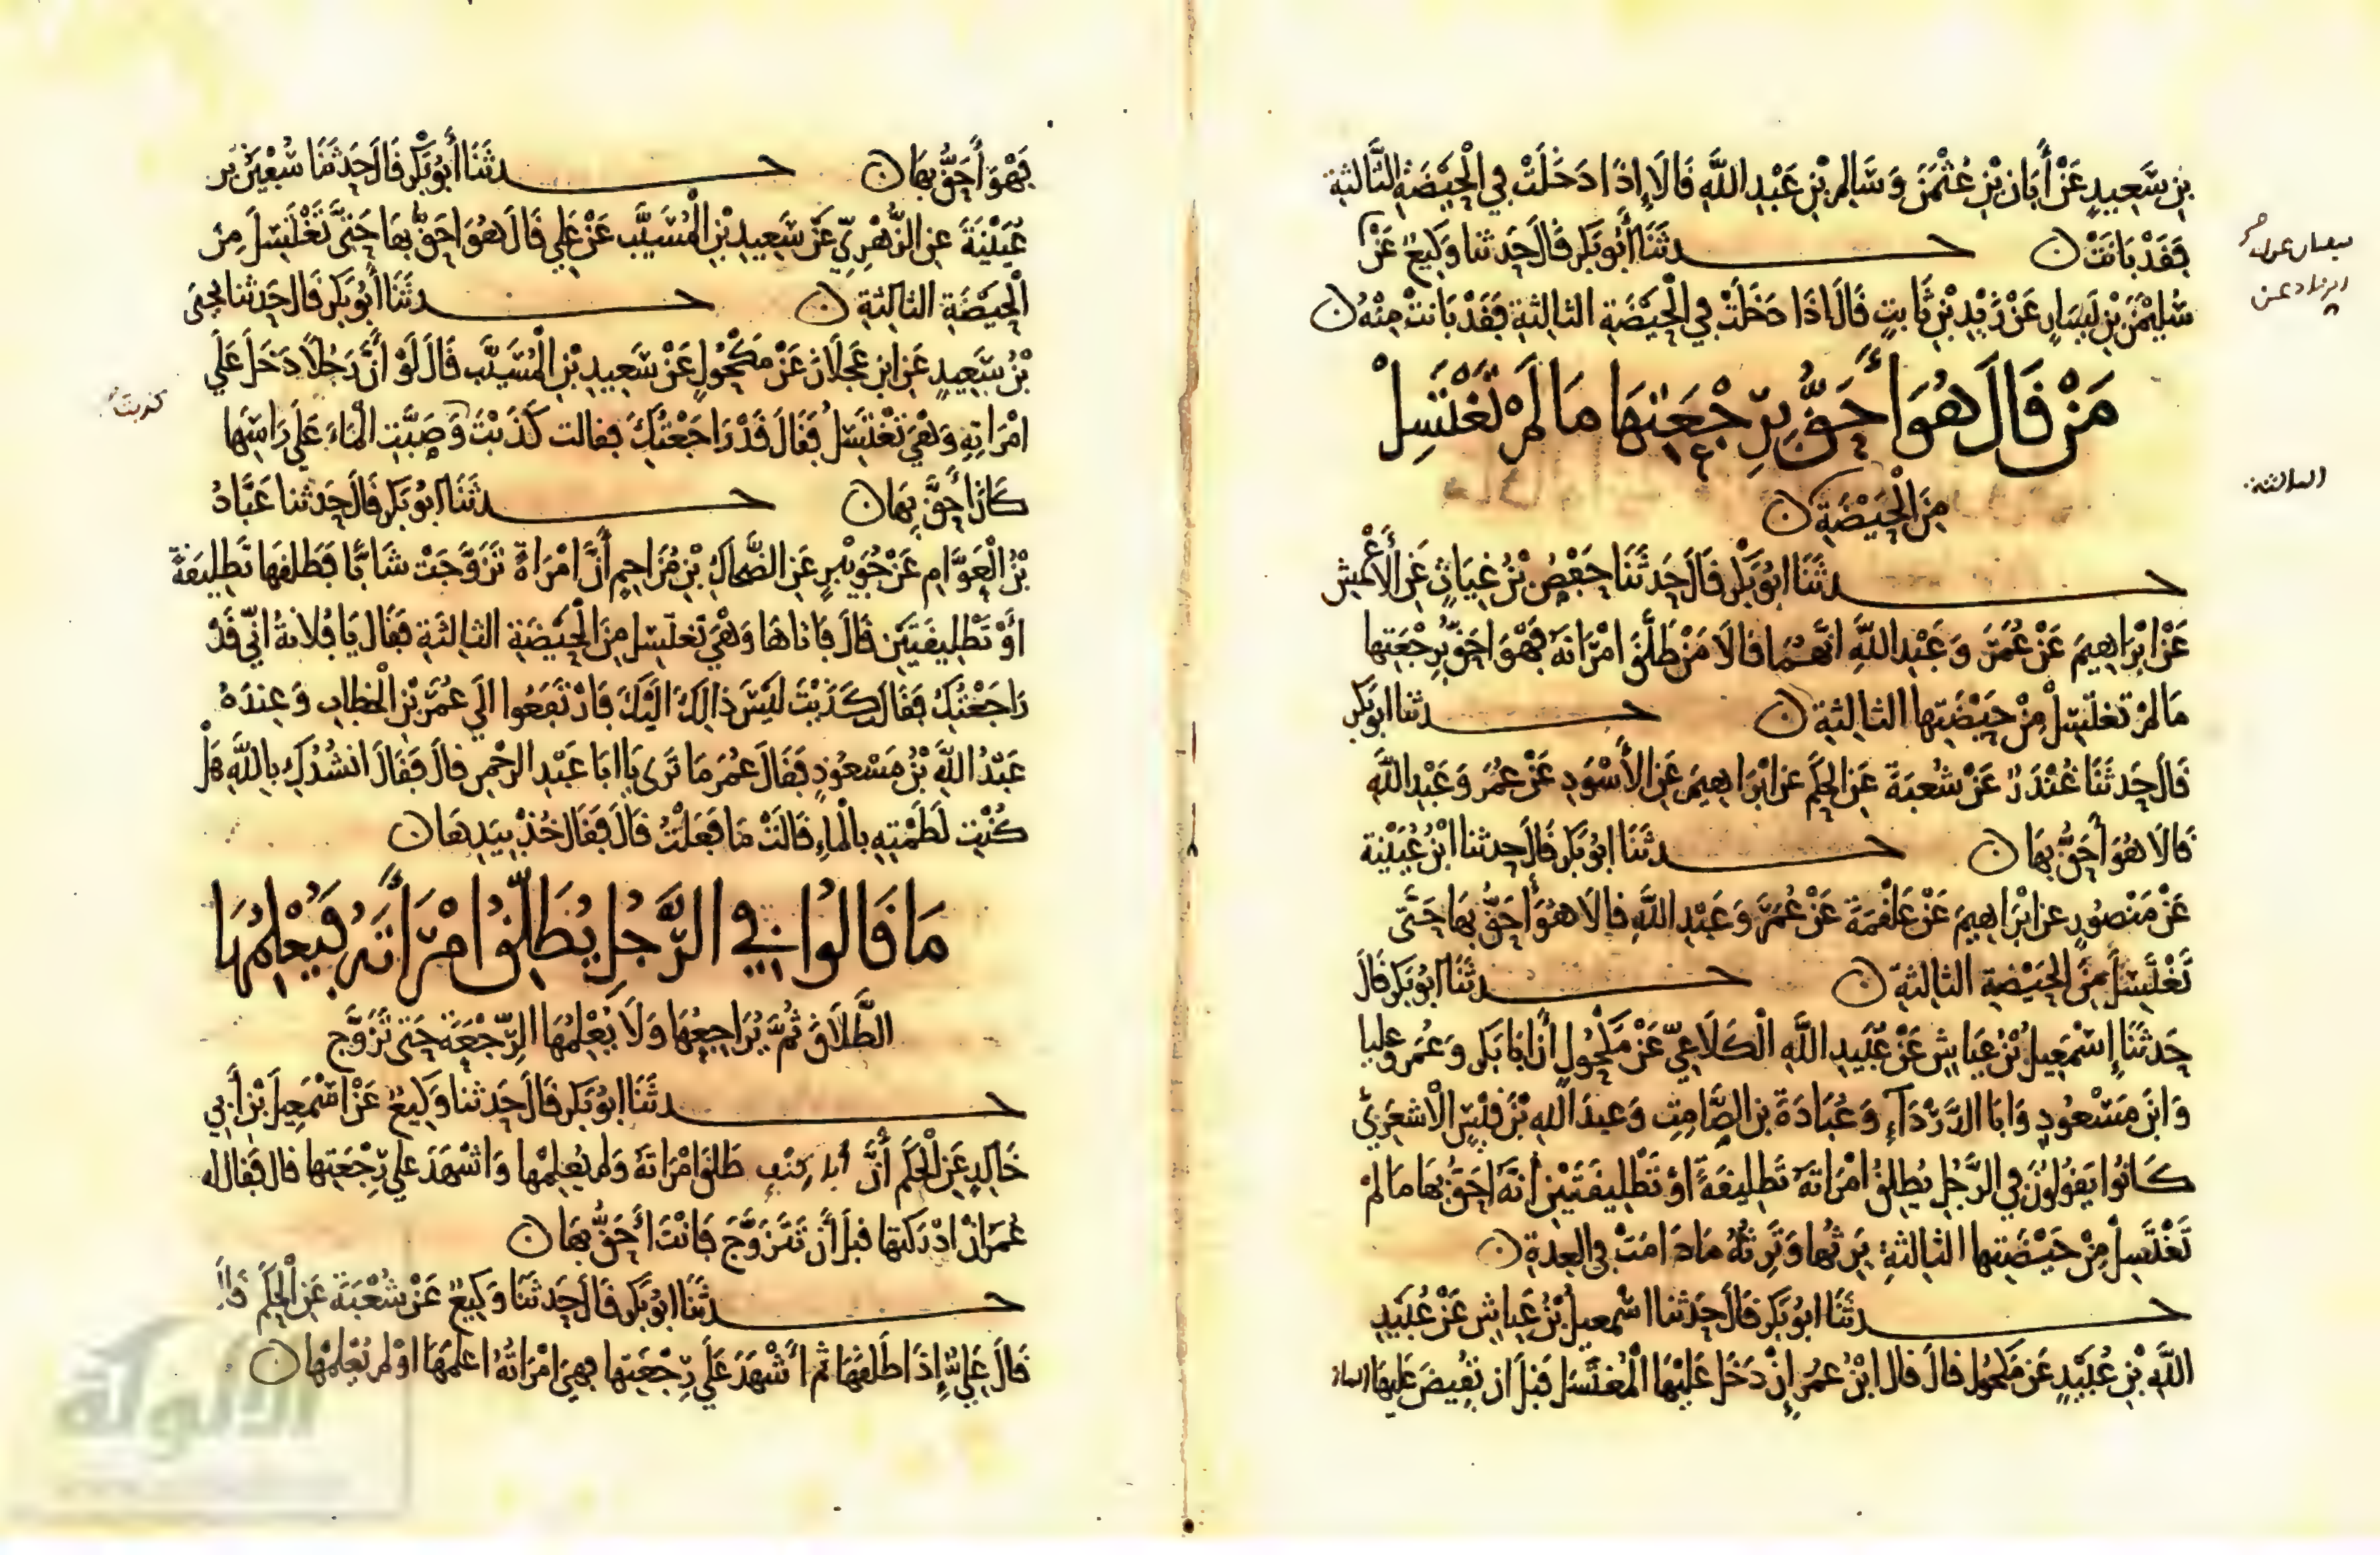 بن سَعِيدٍ عَنْ أَبَانَ بْنِ عُثْمَنَ وَسَالِمِ بْنِ عَبْدِ اللَّهِ قَالَا إِذَا دَخَلَتْ فِي الْحَيْضَةِ الثَّالِثَةِ
فَقَدْ بَانَتْ ن حدثَنَا أَبُو بَكْرٍ قَالَ حَدثنا وَكِيعٌ عَنْ
سُلَيْمَنَ بْنِ يَسَارٍ عَنْ زَيْدِ بْنِ ثَابِتٍ قَالَ اذَا دَخَلَتْ فِي الْحَيْضَةِ الثالِثةِ فَقَدْ بَانَتْ مِنْهُ ن
مَنْ قَالَ هُوَ أَحَقُّ بِرَجْعَتِهَا مَا لَمْ تَغْتَسِلْ
مِنَ الْحَيْضَةِ ن
الثالثة
حدثَنَا ابُو بَكْرٍ قَالَ حَدثَنَا حَفْصُ بْنُ غِيَاثٍ عَنِ الْأَعْمَشِ
عَنْ ابْرَاهِيمَ عَنْ عُمَرَ وَعَبْدِ اللَّهِ انَّهُمَا قَالَا مَنْ طَلَّقَ امْرَاتَهُ فَهْوَ احَقُّ بِرَجْعَتِها
مَا لَمْ تغتَسِلْ مِنْ حَيْضَتِها الثالِثةِ ن حدثنا ابو بَكْرٍ
قَالَ حَدثَنَا غُنْدَرٌ عَنْ شُعْبَةَ عَنِ الحَكَمِ عَنِ ابْرَاهِيمَ عَنِ الأَسْوَدِ عَنْ عُمَرَ وَعَبْدِ اللَّهِ
قَالَا هُوَ أَحَقُّ بِهَا ن حدثَنَا ابُو بَكْرٍ قَالَ حَدثنا ابْنُ عُيَيْنَةَ
عَنْ مَنْصُورٍ عَنِ ابْرَاهِيمَ عَنْ عَلْقَمَةَ عَنْ عُمَرَ وَعَبْدِ اللَّهِ قالَا هُوَ أَحَقُّ بِهَا حَتَّى
تَغْتَسِلَ مِنَ الحَيْضَةِ الثالثةِ ن حدثَنَا ابُو بَكْرٍ قَالَ
حَدثَنَا إِسْمَعِيلُ بْنُ عَيَّاشٍ عَنْ عُبَيْدِ اللَّهِ الْكَلَاعِيِّ عَنْ مَكْحُولٍ أَنَّ ابَا بَكْرٍ وَعُمَرَ وعَلِيا
وَابْنَ مَسْعُودٍ وَابَا الدَّرْدَاءِ وَعُبَادَةَ بن الصَّامِتِ وَعبدَ الله بْنَ قَيْسٍ الْأَشْعَرِيَّ
كَانُوا يَقُولُونَ فِي الرَّجُلِ يُطَلِّقُ امْرَاتَهُ تَطْلِيقَةً أوْ تَطْلِيقَتَيْنِ أَنَّهُ احَقُّ بِهَا مَا لَمْ
تَغْتَسِلْ مِنْ حَيْضَتِها الثالثةِ يَرِثُها وَتَرِثُهُ مَا دَامَتْ فِي العِدةِ ن
حدثَنَا ابُو بَكْرٍ قَالَ حَدثنا اسْمعيلُ بْنُ عَيَاشٍ عَنْ عُبَيْدِ
اللَّهِ بْنِ عُبَيْدٍ عَنْ مَكْحُولٍ قالَ قال ابْنُ عُمَرَ إِنْ دَخَلَ عَلَيْهَا الْمُغْتَسَلَ قَبْلَ ان تُفِيضَ عَلَيْهَا الماء
فَهْوَ أَحَقُّ بِهَا ن حدثَنَا أَبُو بَكْرٍ قَالَ حَدثَنَا سُفْيَنُ بن
عُيَيْنَةَ عن الزُّهْرِيِّ عَنْ سَعِيدِ بْنِ الْمُسَيَّبِ عَنْ عَلِي قَالَ هُوَ احَقُّ بهَا حَتَّى تَغْتَسِلَ مِنْ
الْحَيْضَةِ الثالثةِ ن حدثَنَا أَبُو بَكْرٍ قَالَ حَدثنا يحيى
بْنُ سَعِيدٍ عَنِ ابْنِ عَجْلَانَ عَنْ مَكْحُولٍ عَنْ سَعِيدِ بْنِ الْمُسَيَّبِ قَالَ لَوْ أَنَّ رَجُلًا دَخَلَ عَلَى
امْرَاتِهِ وَهْيَ تَغْتَسِلُ فَقَالَ قَدْ رَاجَعْتُكِ فقالت كَذَبْتَ وَصَبَّتِ الْمَاءَ عَلَى رَاسِهَا
كذبت
كَانَ أَحَقَّ بِهَا ن حدثَنَا ابُو بَكْرٍ قَالَ حَدثنا عَبَّادُ
بْنُ الْعَوَّامِ عَنْ جُوَيْبِرٍ عَنِ الضَّحاكِ بْنِ مُزَاحِمٍ أَنَّ امْرَاةً تَزَوَّجَتْ شَابًّا فَطَلقَهَا تَطْلِيقَةً
اوْ تَطْلِيقَتَيْنِ قَالَ فَاتاهَا وَهْيَ تَغتسِل مِنَ الْحَيْضَةِ الثالِثةِ فَقَالَ يَا فُلَانةُ انِّي قَدْ
رَاجَعْتُكِ فَقَالَت كَذَبْتَ لَيْسَ ذالِكَ الَيْكَ فَارْتَفَعُوا الَى عُمَرَ بْنِ الْخطابِ وَعِنْدَهُ
عَبْدُ اللَّهِ بْنُ مَسْعُودٍ فَقَالَ عُمَرُ مَا تَرَى يَا ابَا عَبْدِ الرحْمنِ قالَ فَقَالَ انْشُدُكِ بِاللَّهِ هَلْ
كُنْتِ لَطَمْتِهِ بِالْمَاءِ قَالَتْ مَا فَعَلْتُ قَالَ فَقَالَ خُذْ بِيَدِهَا ن
مَا قَالُوا فِي الرَّجُلِ يُطَلِّقُ امْرَأَتَهُ فَيُعْلِمُهَا
الطَّلَاقَ ثُمَّ يُرَاجِعُهَا وَلَا يُعْلِمُهَا الرَّجْعَةَ حَتَى تَزَوَّجَ
حدثَنَا ابُو بَكْرٍ قَالَ حَدثنا وَكِيعٌ عَنْ اسْمَعِيلَ بْنِ أَبِي
خَالِدٍ عَنِ الْحَكَمِ أَنَّ أبا كنف طَلقَ امْرَاتَهُ وَلم يُعْلِمْها وَاشْهَدَ عَلَى رَجْعَتِها قال فَقَال له
عُمَرُ انْ ادْرَكْتَها قبلَ أَنْ تَتَزَوَّجَ فَانْتَ أَحَقُّ بِهَا ن
حدثَنَا ابُو بَكْرٍ قَالَ حَدثَنَا وَكِيعٌ عَنْ شُعْبَةَ عَنِ الْحَكَمِ قَالَ
قَالَ عَلِيٌّ إِذَا طَلقَهَا ثم أَشْهَدَ عَلَى رَجْعَتِها فهيَ امْرَاتُهُ اعلَمَهَا اوْ لم يُعْلِمْهَا ن
الألوكة